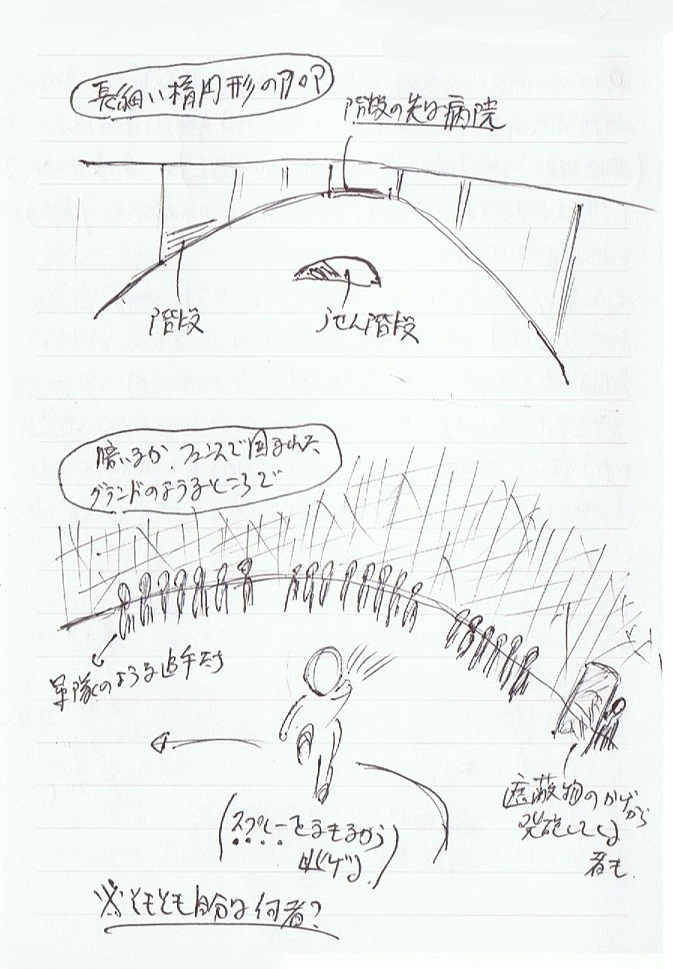 長細い楕円形のフロア
階段の先は病院
階段
らせん階段
暗いなか、フェンスで囲まれた
グランドのようなところで
軍隊のような追手たち
遮蔽物のかげから
発砲してくる
者も
(スプレーを
逃げる)
※そもそも自分は何者?